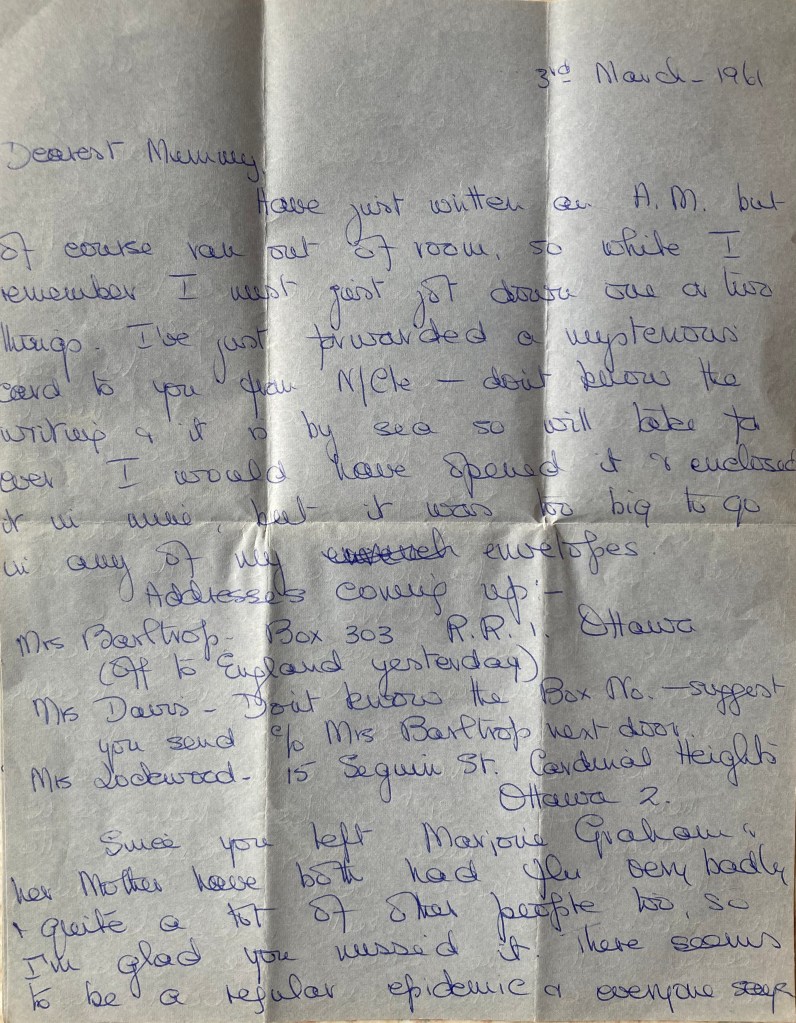 3rd March - 1961
Dearest Mummy,
Have just written an A.M. but
of course ran out of room, so while I
remember I must just jot down one or two
things. I've just forwarded a mysterious
card to you from N/Cle - don't know the
writing & it is by sea so will take for
ever I would have opened it & enclosed
it in mine, but it was too big to go
in any of my envelopes.
Addresses coming up:-
Mrs Barltrop - Box 303 R.R. 1. Ottawa
(Off to England yesterday)
Mrs Davis - Don't know the Box No. - suggest
you send c/o Mrs Barltrop next door.
Mrs Lockwood - 15 Seguin St. Cardinal Heights
Ottawa 2.
Since you left Marjorie Graham &
her Mother have both had flu very badly
& quite a lot of other people too, so
I'm glad you missed it. There seems
to be a regular epidemic & everyone